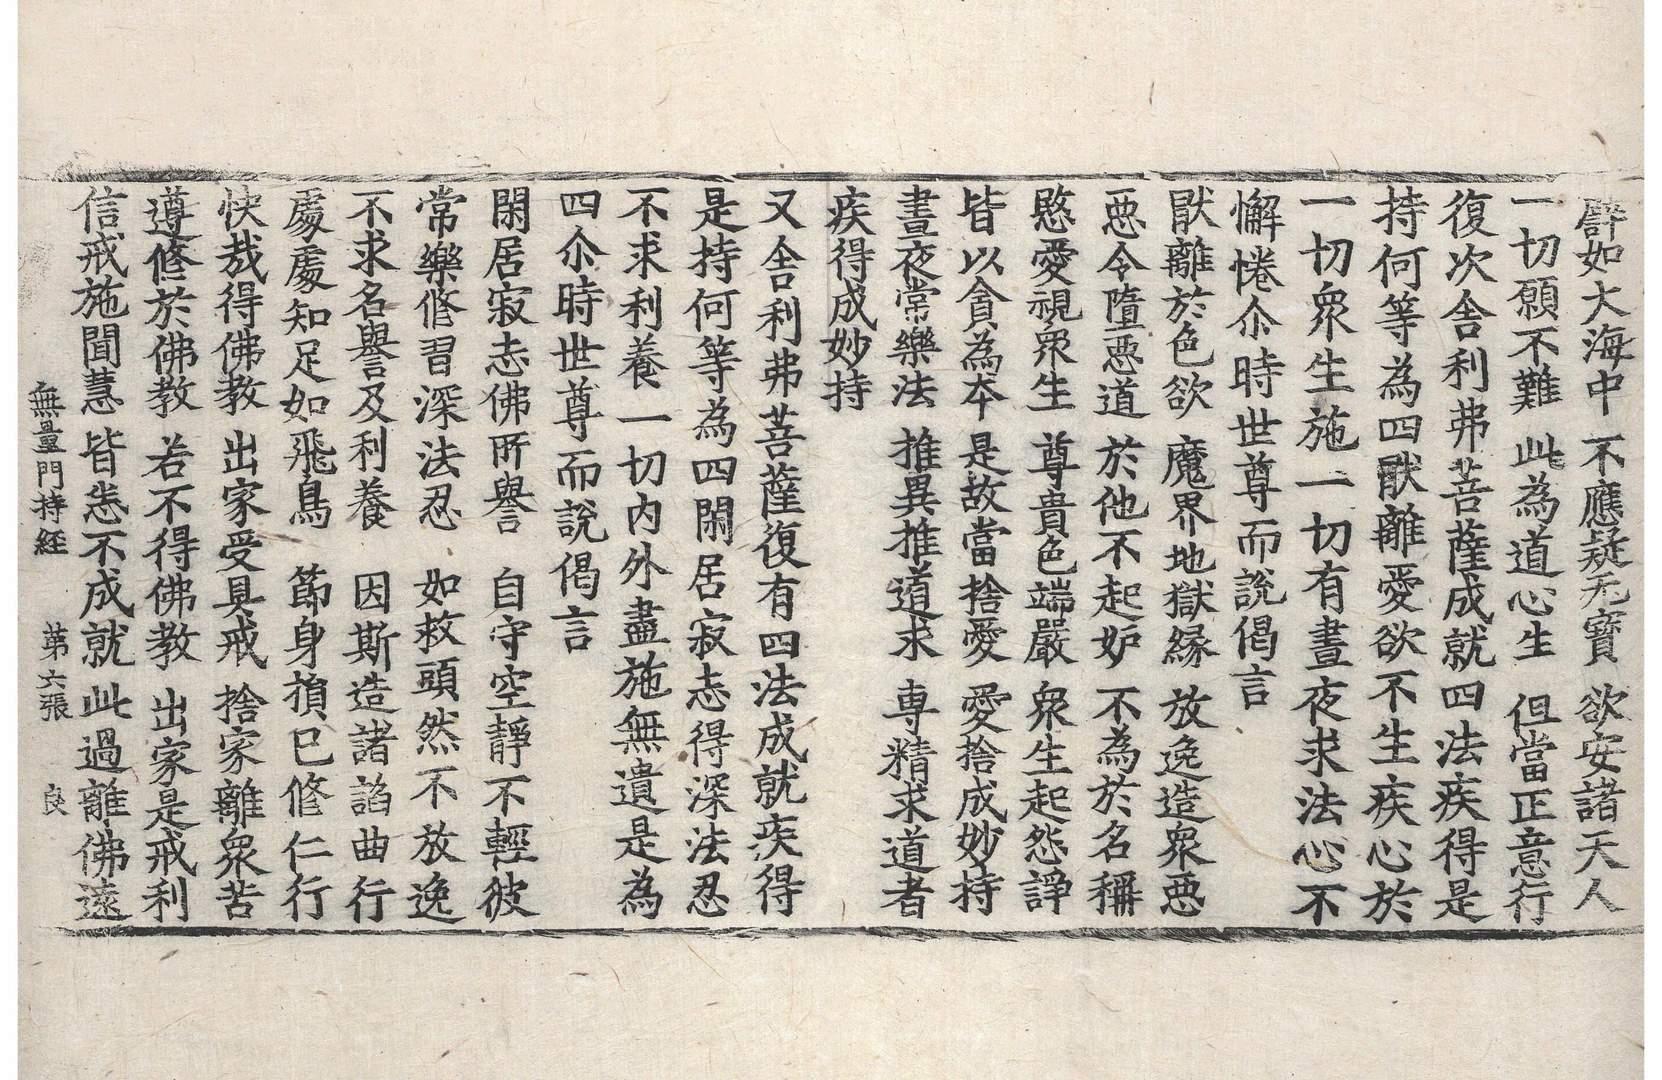 譬如大海中　不應疑无寶　欲安諸天人
一切願不難　此為道心生　但當正意行
復次舍利弗菩薩成就四法疾得是
持何等為四猒離愛欲不生疾心於
一切衆生施一切有晝夜求法心不
懈惓尒時世尊而說偈言
猒離於色欲　魔界地獄緣　放逸造衆惡
惡令墮惡道　於他不起妒　不為於名稱
愍愛視衆生　尊貴色端嚴　衆生起怨諍
皆以貪為本　是故當捨愛　愛捨成妙持
晝夜常樂法　推異推道求　専精求道者
疾得成妙持
又舍利弗菩薩復有四法成就疾得
是持何等為四閑居寂志得深法忍
不求利養一切内外盡施無遺是為
四尒時世尊而說偈言
閑居寂志佛所譽　自守空靜不輕彼
常樂修習深法忍　如救頭然不放逸
不求名譽及利養　因斯造諸諂曲行
處處知足如飛鳥　節身損已修仁行
快哉得佛教　出家受具戒　捨家離衆苦
遵修於佛教　若不得佛教　出家是戒利
信戒施聞慧　皆悉不成就　此過離佛遠
無量門持経　第六張　良